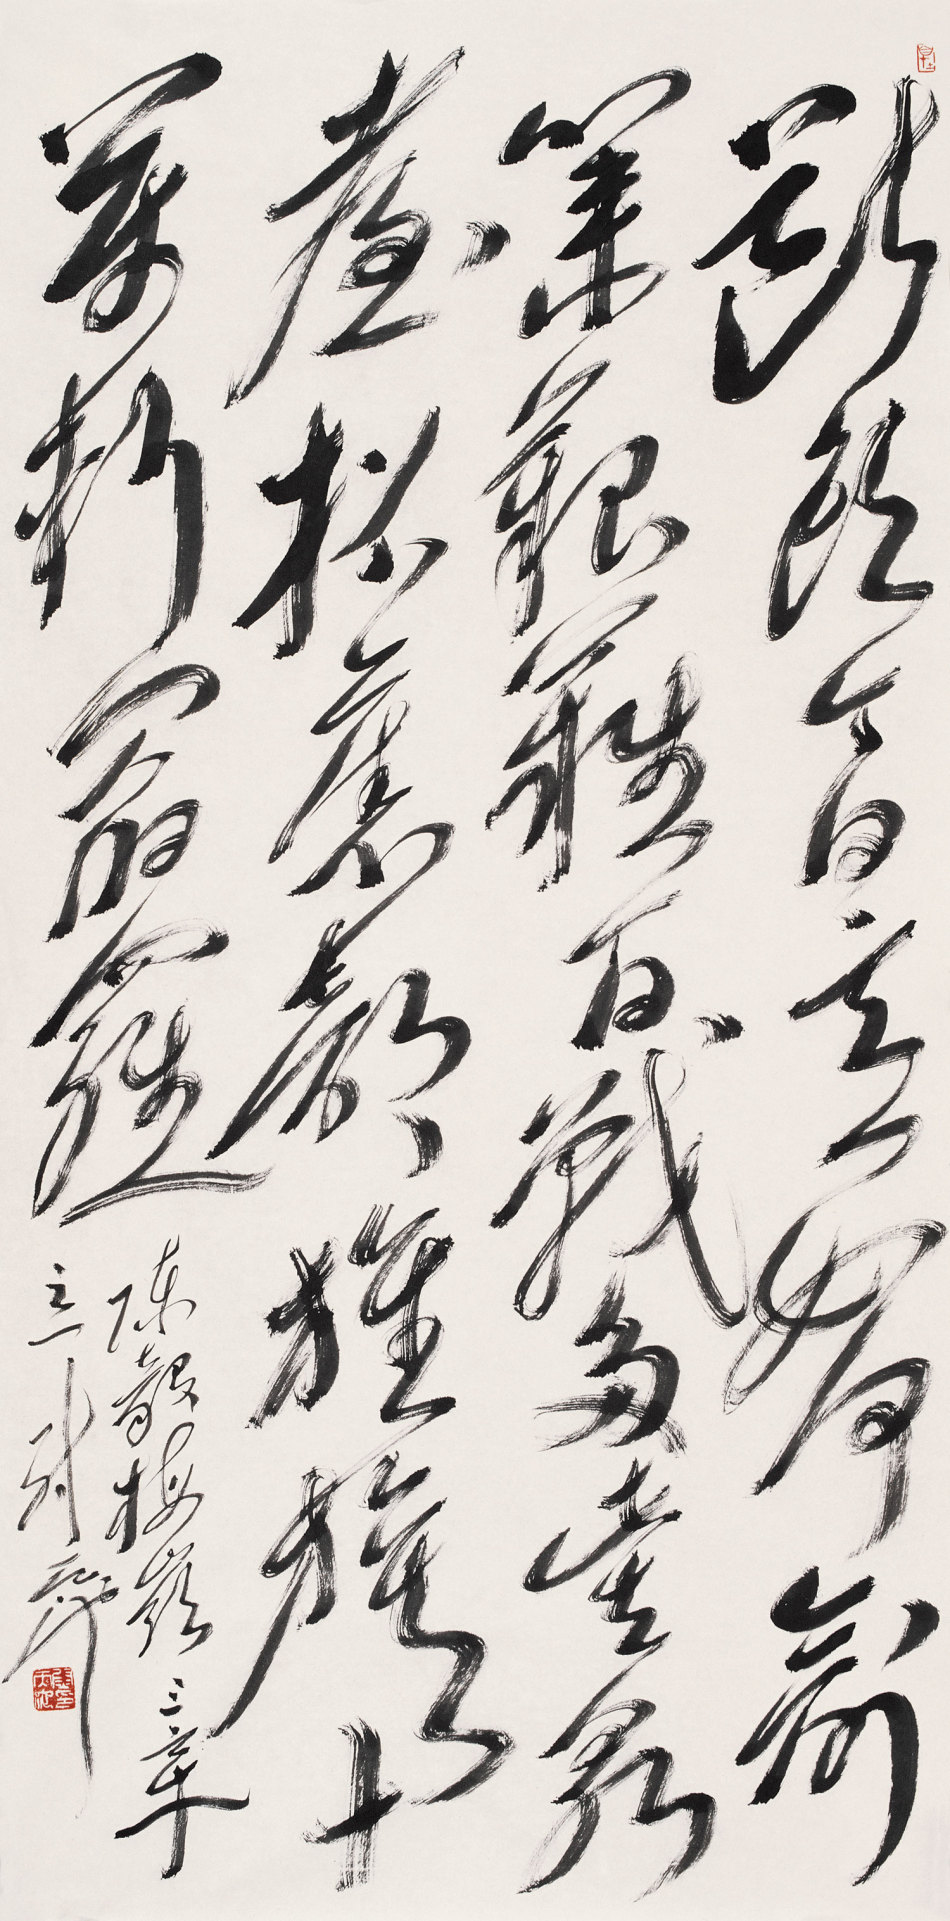 斷頭今日意如何創
業艱難百戰多此去泉
臺招舊部旌旗十
萬斬閻羅
陳毅梅嶺三章